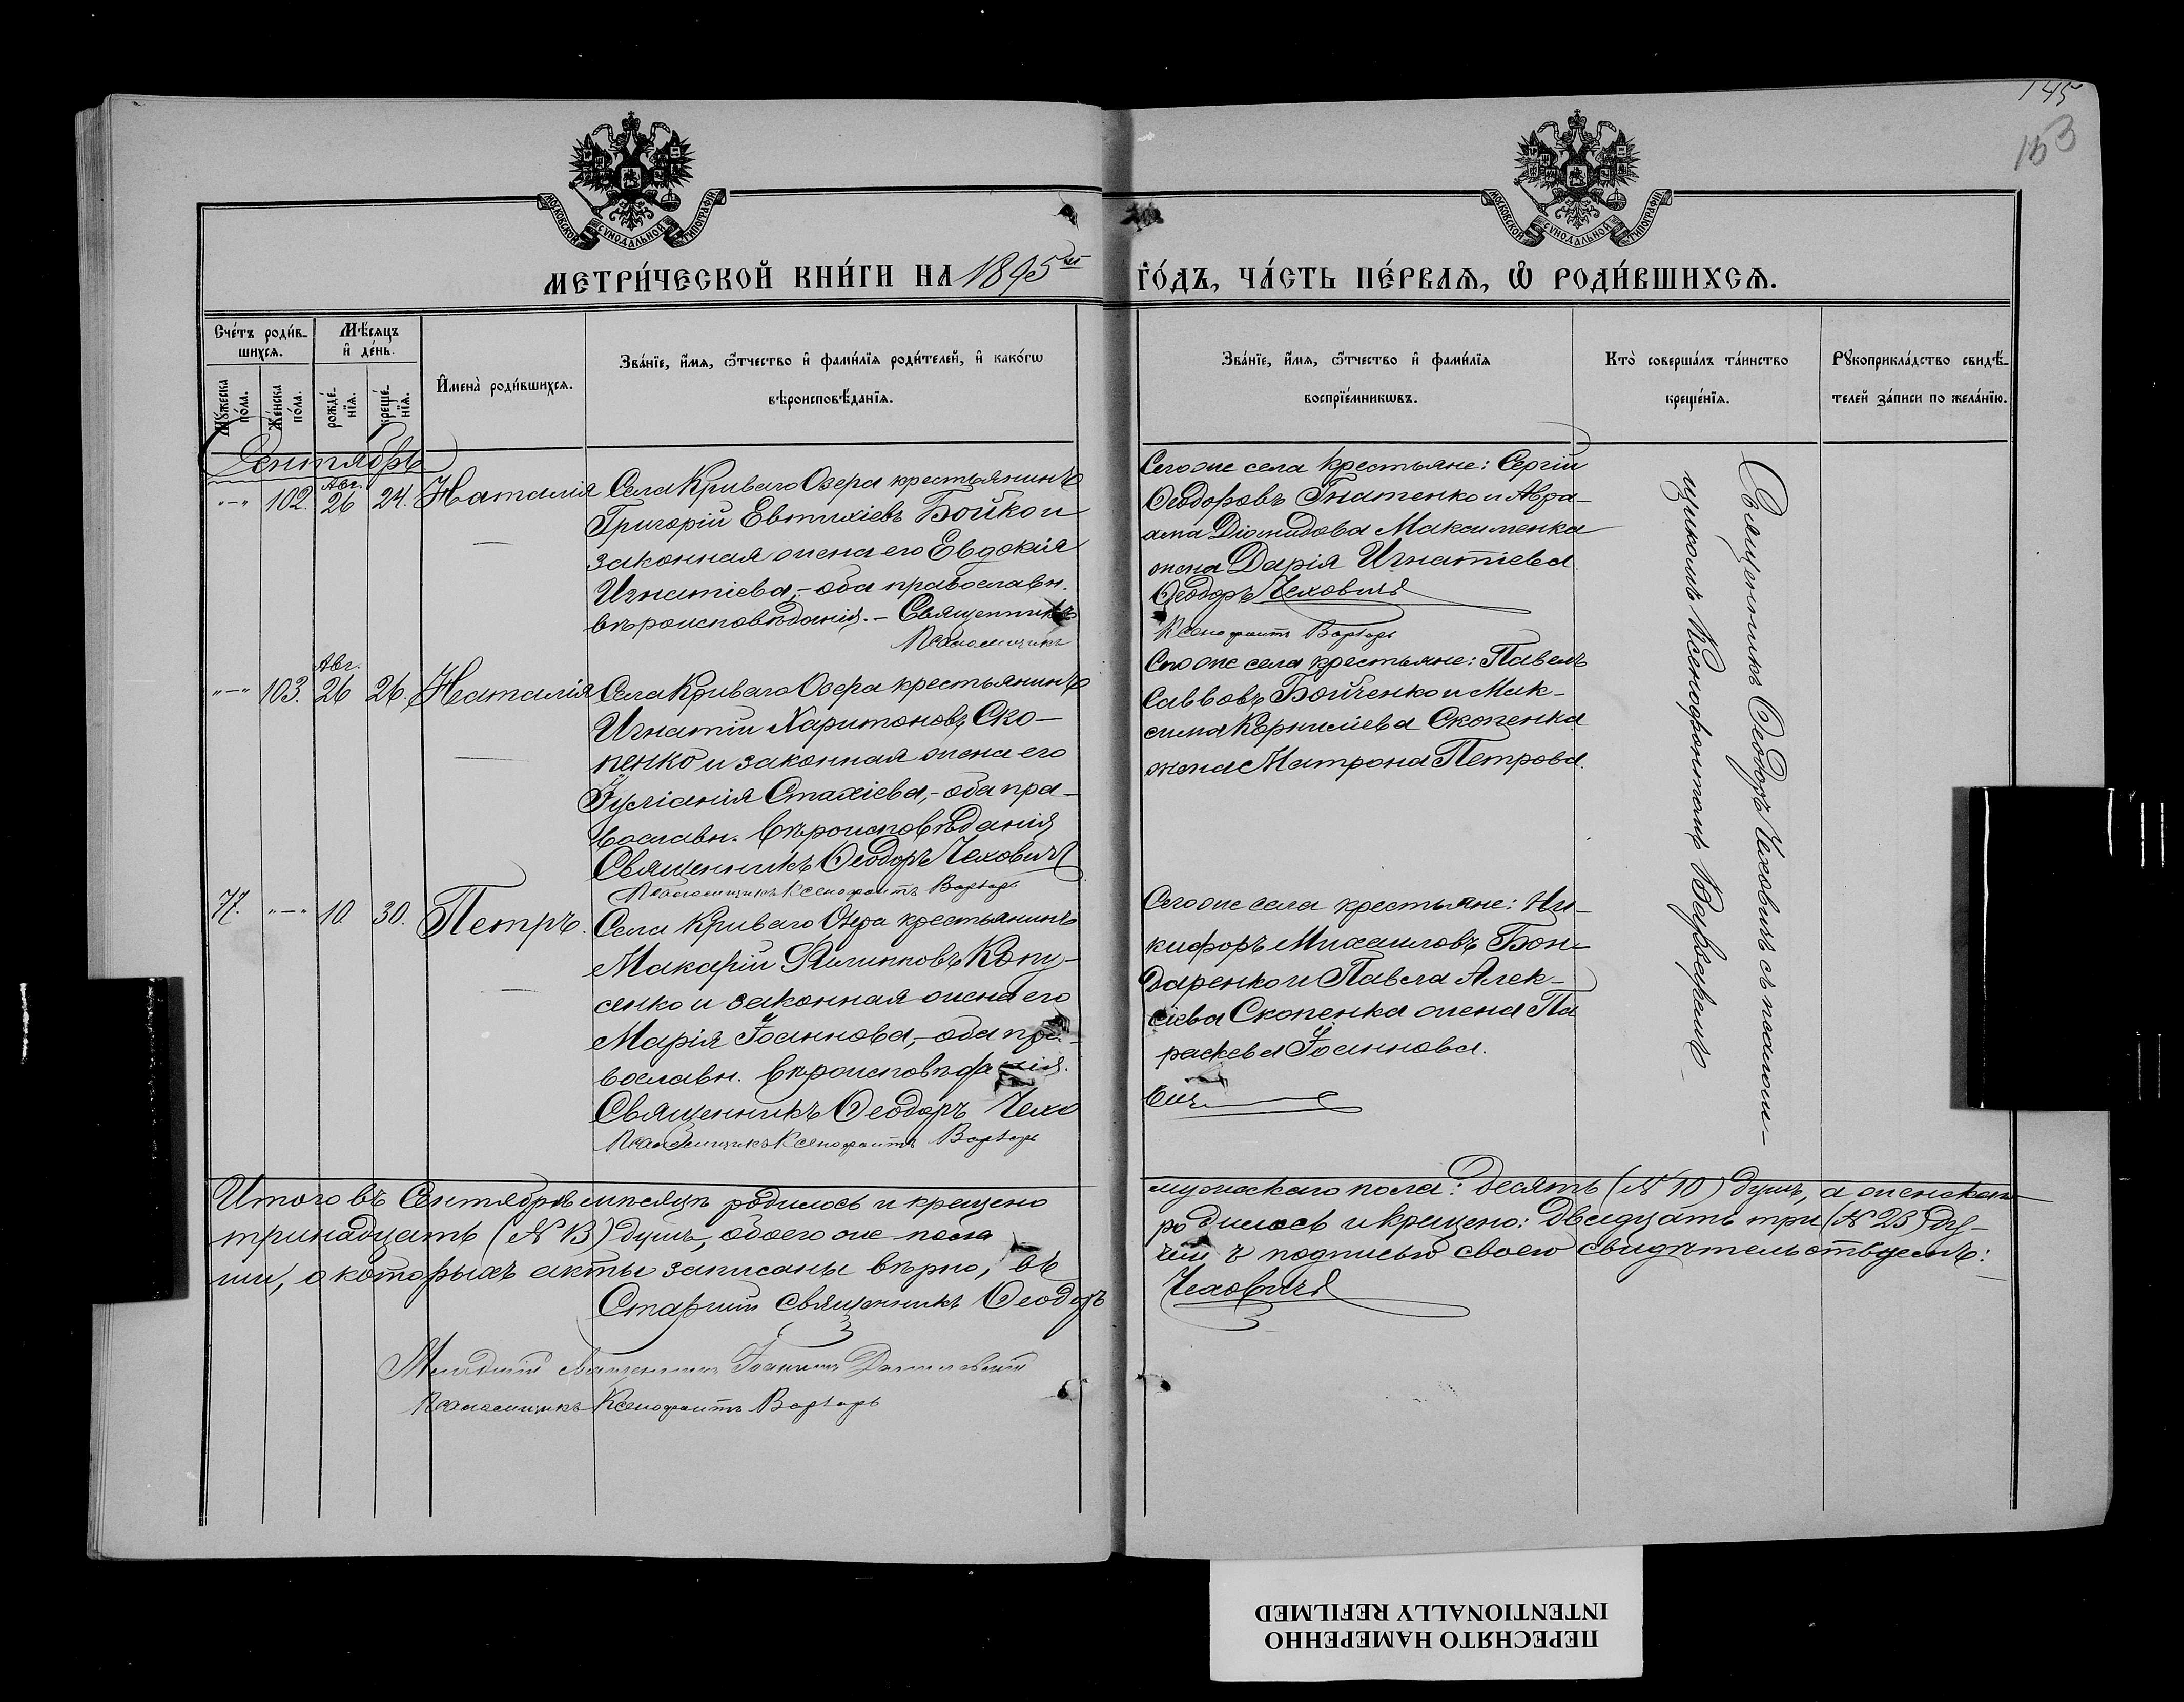 145
153
МОСКОВСКОЙ СѴНОДАЛЬНОЙ ТИПОГРАФІИ
МОСКОВСКОЙ СѴНОДАЛЬНОЙ ТИПОГРАФІИ
МЕТРИ́ЧЕСКОЙ КНИ́ГИ НА 1895 ГО́ДЪ, ЧА́СТЬ ПЕ́РВАѦ, Ѡ҆ РОДИ́ВШИХСѦ.
Сче́тъ роди́в-
шихсѧ.
Мꙋ́жеска по́ла.
Же́нска по́ла.
Мѣ́сѧцъ
и҆ де́нь.
рожде́-
нїѧ.
креще́-
нїѧ.
И҆мена̀ роди́вшихсѧ.
Зва́нїе, и҆́мѧ, ѻ҆́тчество и҆ фами́лїѧ роди́телей, и҆ како́гѡ
вѣроисповѣ́данїѧ.
Зва́нїе, и҆́мѧ, ѻ҆́тчество и҆ фами́лїѧ
воспрїе́мникѡвъ.
Кто̀ соверша́лъ та́инство
креще́нїѧ.
Рꙋкоприкла́дство свидѣ́-
телей за́писи по жела́нїю.
Сентябрь
"—" 102. Авг. 26 24. Наталія
Села Криваго Озера крестьянинъ
Григорій Евтихіевъ Бойко и
законная жена его Евдокія
Игнатіева,- оба православн.
вѣроисповѣданія. - Священникъ
Псаломщикъ
Сегоже села крестьяне: Сергій
Ѳеодоровъ Гнатенко и Авра-
ама Діомидова Максименка
жена Дарія Игнатіева
Ѳеодоръ Чеховичъ
Ксенофонтъ Варварь
"—" 103. Авг. 26 26. Наталія
Села Криваго Озера крестьянинъ
Игнатій Харитоновъ Ско-
пенко и законная жена его
Іуліанія Стахіева,- оба пра-
вославн. вѣроисповѣданія
Священникъ Ѳеодоръ Чеховичъ
Псаломщикъ Ксенофонтъ Варварь
Сегоже села крестьяне: Павелъ
Саввовъ Бойченко и Мак-
сима Корниліева Скопенка
жена Матрона Петрова.
77. "—" 10 30. Петръ.
Села Криваго Озера крестьянинъ
Макарій Филипповъ Копу-
сенко и законная жена его
Марія Іоаннова,- оба пра-
вославн. вѣроисповѣданія.
Священникъ Ѳеодоръ Чехо
Псаломщикъ Ксенофонтъ Варварь
Сегоже села крестьяне: Ни-
кифоръ Михаиловъ Бон-
даренко и Павла Алек-
сіева Скопенка жена Па
раскева Іоаннова.
вичъ
Священникъ Ѳеодоръ Чеховичъ съ псалом-
щикомъ Ксенофонтомъ Варваремъ
Итого въ Сентябрѣ мѣсяцѣ родилось и крещено мужскаго пола: десять (№ 10) душъ, а женскаго
тринадцать (№ 13) душъ, обоего же пола родилось и крещено: двадцать три (№ 23) ду-
ши, о которыхъ акты записаны вѣрно, въ чемъ подписью своею свидѣтельствуемъ:
Старшій священникъ Ѳеодоръ Чеховичъ
Младшій священникъ Іоаннъ
Псаломщикъ Ксенофонтъ Варварь
ПЕРЕСНЯТО НАМЕРЕННО
INTENTIONALLY REFILMED